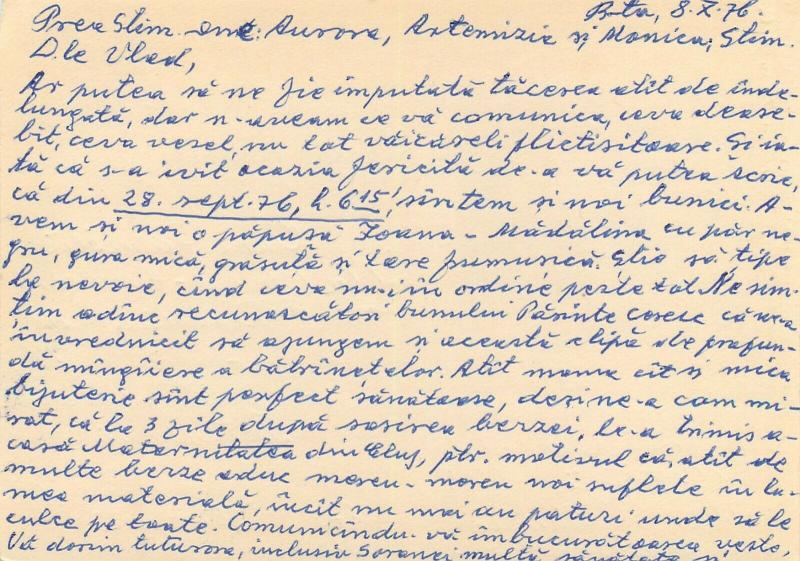 B-ta, 8.X.76.
Prea Stim. dne: Aurora, Artemizia și Monica; Stim.
D-le Vlad,
Ar putea să ne fie imputată tăcerea atît de înde-
lungată, dar n-aveam ce vă comunica, ceva deose-
bit, ceva vesel, nu tot văicăreli plictisitoare. Și ia-
tă că s-a ivit ocazia fericită de-a vă putea scrie,
că din 28. sept. 76, h. 6.15', sîntem și noi bunici. A-
vem și noi o păpușă Ioana-Mădălina cu păr ne-
gru, gura mică, grăsuță și tare frumusică. Știe să țipe
la nevoie, cînd ceva nu-i în ordine peste tot. Ne sim-
țim adînc recunoscători bunului Părinte ceresc că ne-a
învrednicit să ajungem și această clipă de profun-
dă mîngîiere a bătrînețelor. Atît mama cît și mica
bijuterie sînt perfect sănătoase, deși ne-a cam mi-
rat, că la 3 zile după sosirea berzei, le-a trimis a-
casă Maternitatea din Cluj, ptr. motivul că, atît de
multe berze aduc mereu-mereu noi suflete în lu-
mea materială, încît nu mai au paturi unde să le
culce pe toate. Comunicîndu-vă îmbucurătoarea veste,
Vă dorim tuturora, inclusiv Soranei multă sănătate și